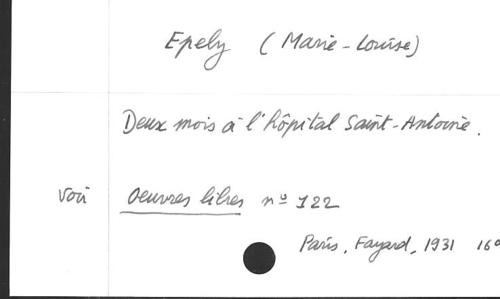 Epely (Marie-Louise)
Deux mois à l'hôpital Saint-Antoine.
Voir Oeuvres libres nº 122
Paris, Fayard, 1931 16º